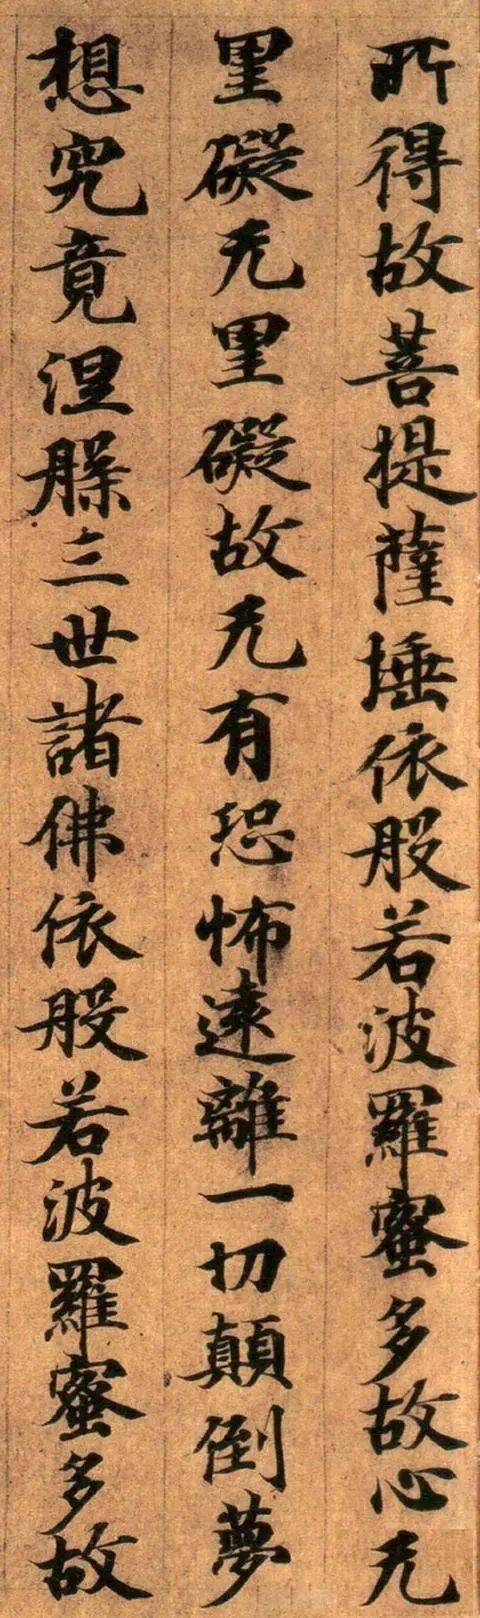 所得故菩提薩埵依般若波羅蜜多故心无
罣礙无罣礙故无有恐怖遠離一切顛倒夢
想究竟涅槃三世諸佛依般若波羅蜜多故